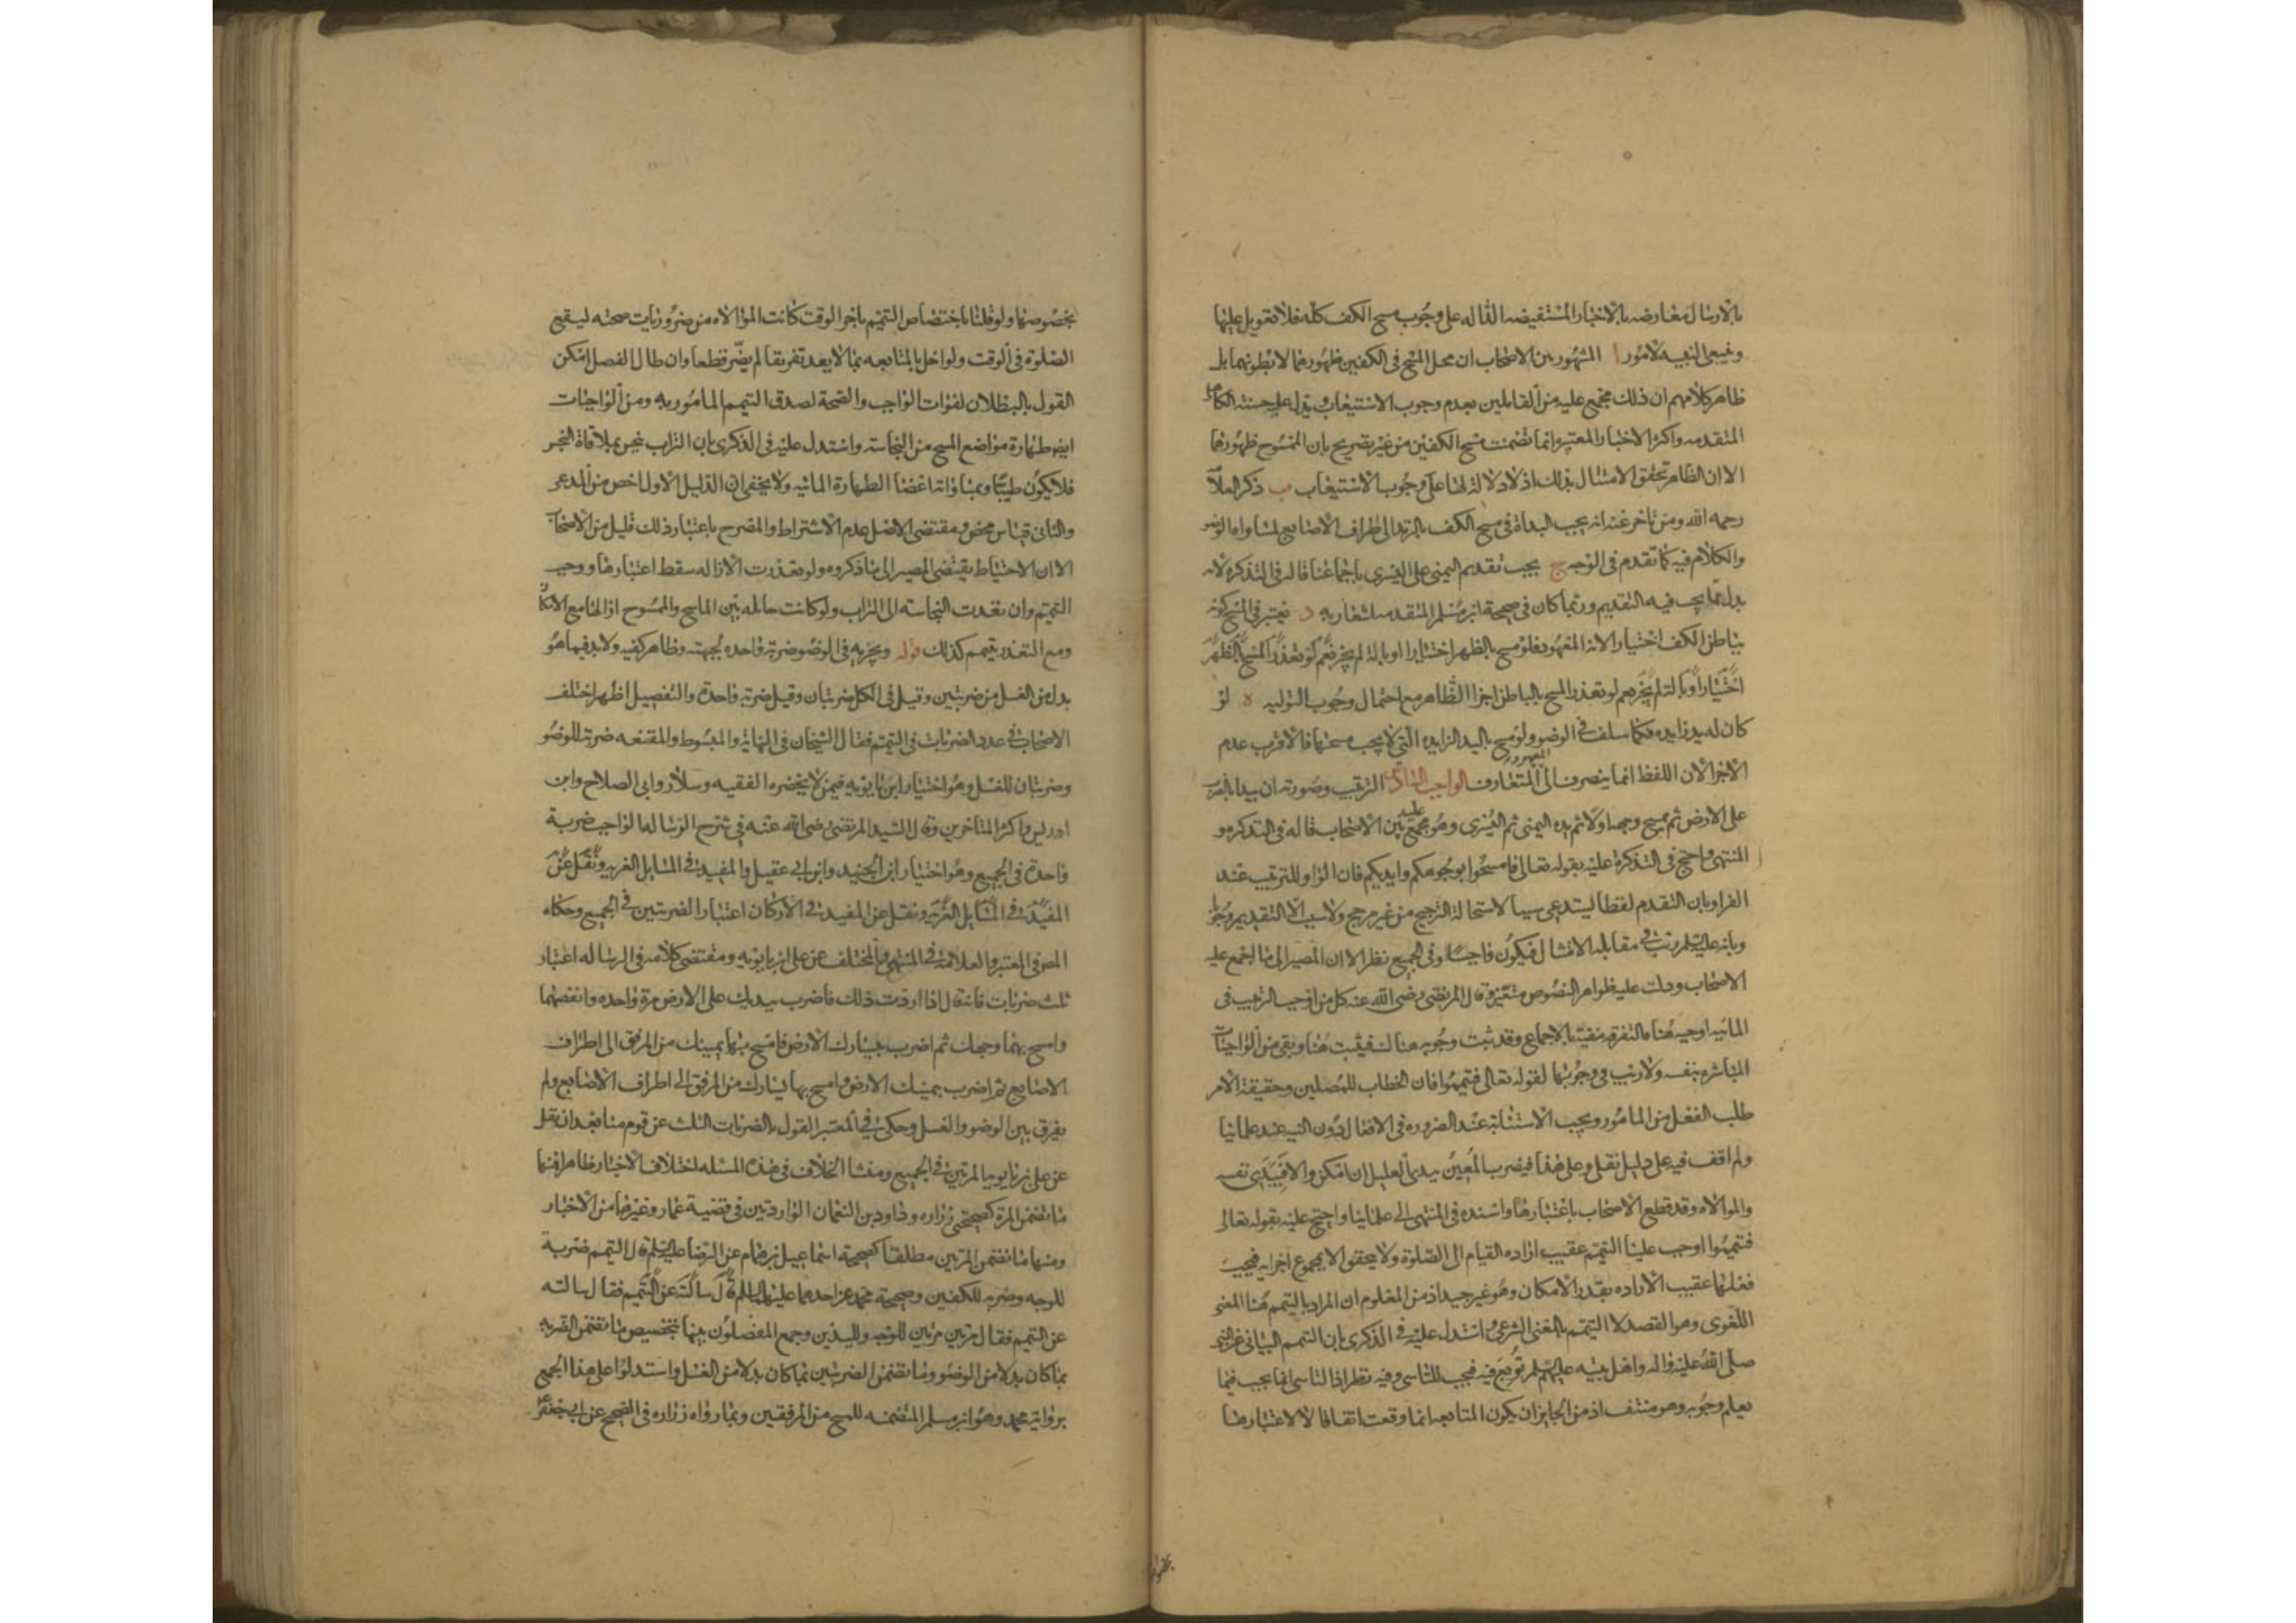 بالارسال معارضه بالاخبار المستفيضه الداله على وجوب مسح الكف كله فلا تعويل عليها
وينبغى التنبيه لامور ا المشهور بين الاصحاب ان محل المسح فى الكفين ظهورهما لا بطونهما بل
ظاهر كلامهم ان ذلك مجمع عليه من القايلين بعدم وجوب الاستيعاب ويدل عليه حسنة الكاهلى
المتقدمه واكثر الاخبار المعتبره انما تضمنت مسح الكفين من غير تصريح بان الممسوح ظهورهما
الا ان الظاهر تحقق الامتثال بذلك اذ لا دلالة لها على وجوب الاستيعاب ب ذكر العلامه
رحمه الله ومن تاخر عنه انه يجب البداة فى مسح الكف بالزند الى اطراف الاصابع لمساواه الوضو
والكلام فيه كما تقدم فى الوجه ج يجب تقديم اليمنى على اليسرى باجماعنا قاله فى التذكره لانه
بدل مما يجب فيه التقديم وربما كان فى صحيحة ابن مسلم المتقدمه اشعار به د يعتبر فى المسح كونه
بباطن الكف اختيارا لانه المعهود فلو مسح بالظهر اختيارا او بالة لم يجز نعم لو تعذر المسح بالظهر
اختيارا او بالة لم يجز نعم لو تعذر المسح بالباطن اجزا الظاهر مع احتمال وجوب التوليه ه لو
كان له يد زايده فكما سلف فى الوضو ولو مسح باليد الزايده التى لا يجب مسحها فالاقرب عدم
الاجزا لان اللفظ انما ينصرف الى المعهود المتعارف الواجب السادس الترتيب وصورته ان يبدا بالضرب
على الارض ثم يمسح وجهه اولا ثم يده اليمنى ثم اليسرى وهو مجمع عليه بين الاصحاب قاله فى التذكره و
المنتهى واحتج فى التذكرة عليه بقوله تعالى فامسحوا بوجوهكم وايديكم فان الواو للترتيب عند
الفرا وبان التقدم لفظا يستدعى سببا لاستحالة الترجيح من غير مرجح ولا سبب الا التقديم وجوبا
وبانه عليه السلم رتب فى مقابلة الامتثال فيكون واجبا وفى الجميع نظر الا ان المصير الى ما اجمع عليه
الاصحاب ودلت عليه ظواهر النصوص متعين وقال المرتضى رضى الله عنه كل من اوجب الترتيب فى
المائيه اوجبه هنا فالتفرقه منفيه بالاجماع وقد ثبت وجوبه هناك فيثبت هنا وبقى من الواجبات
المباشره بنفسه ولا ريب فى وجوبها لقوله تعالى فتيمموا فان الخطاب للمصلين وحقيقة الامر
طلب الفعل من المامور ويجب الاستنابة عند الضروره فى الافعال دون النيه عند علمائنا
ولم اقف فيه على دليل نقلى وعلى هذا فيضرب المعين بيدى العليل ان امكن والا فبيدى نفسه
والموالاه وقد قطع الاصحاب باعتبارها واسنده فى المنتهى الى علماينا واحتج عليه بقوله تعالى
فتيمموا اوجب علينا التيمم عقيب اراده القيام الى الصلوة ولا يتحقق الا بمجموع اجزايه فيجب
فعلها عقيب الاراده بقدر الامكان وهو غير جيد اذ من المعلوم ان المراد بالتيمم هنا المعنى
اللغوى وهو القصد لا التيمم بالمعنى الشرعى واستدل عليه فى الذكرى بان التيمم البيانى عن النبى
صلى الله عليه واله واهل بيته عليهم السلم توبع فيه فيجب للتاسى وفيه نظر اذ التاسى انما يجب فيما
يعلم وجوبه وهو منتف اذ من الجايز ان يكون المتابعه انما وقعت اتفاقا لا لاعتبارها
بخصوصها ولو قلنا باختصاص التيمم باخر الوقت كانت الموالاه من ضروريات صحته ليقع
الصلوة فى الوقت ولو اخل بالمتابعه بما لا يعد تفريقا لم يضر قطعا وان طال الفصل امكن
القول بالبطلان لفوات الواجب والصحة لصدق التيمم المامور به ومن الواجبات
ايضا طهارة مواضع المسح من النجاسة واستدل عليه فى الذكرى بان التراب ينجس بملاقاة النجس
فلا يكون طيبا وبمساواته اعضا الطهارة المائيه ولا يخفى ان الدليل الاول اخص من المدعى
والثانى قياس محض ومقتضى الاصل عدم الاشتراط والمصرح باعتبار ذلك قليل من الاصحاب
الا ان الاحتياط يقتضى المصير الى ما ذكروه ولو تعذرت الازاله سقط اعتبارها ووجب
التيمم وان تعدت النجاسه الى التراب ولو كانت حايله بين الماسح والممسوح ازالها مع الامكان
ومع التعذر يتيمم كذلك قوله ويجزيه فى الوضو ضربة واحده لجبهته وظاهر كفيه ولا بد فيما هو
بدل من الغسل من ضربتين وقيل فى الكل ضربتان وقيل ضربة واحدة والتفصيل اظهر اختلف
الاصحاب فى عدد الضربات فى التيمم فقال الشيخان فى النهاية والمبسوط والمقنعه ضربة للوضو
وضربتان للغسل وهو اختيار ابن بابويه فيمن لا يحضره الفقيه وسلار وابى الصلاح وابن
ادريس واكثر المتاخرين وقال السيد المرتضى رضى الله عنه فى شرح الرساله الواجب ضربة
واحدة فى الجميع وهو اختيار ابن الجنيد وابن ابى عقيل والمفيد فى المسايل الغريه ونقل عن
المفيد فى المسايل الغريه ونقل عن المفيد فى الاركان اعتبار الضربتين فى الجميع وحكاه
المص فى المعتبر والعلامه فى المنتهى والمختلف عن على ابن بابويه ومقتضى كلامه فى الرساله اعتبار
ثلث ضربات فانه قال اذا اردت ذلك فاضرب بيديك على الارض مرة واحده وانفضهما
وامسح بهما وجهك ثم اضرب بيسارك الارض فامسح بها يمينك من المرفق الى اطراف
الاصابع ثم اضرب بيمينك الارض وامسح بها يسارك من المرفق الى اطراف الاصابع ولم
يفرق بين الوضو والغسل وحكى فى المعتبر القول بالضربات الثلث عن قوم منا بعد ان نقل
عن على بن بابويه المرتين فى الجميع ومنشا الخلاف فى هذه المسئله اختلاف الاخبار ظاهرا فمنها
ما تضمن المرة كصحيحتى زراره وداود بن النعمان الواردتين فى قضية عمار وغيرهما من الاخبار
ومنها ما تضمن المرتين مطلقا كصحيحة اسماعيل بن همام عن الرضا عليه السلم قال التيمم ضربة
للوجه وضربه للكفين وصحيحة محمد عن احدهما عليهما السلم قال سالته عن التيمم فقال سالته
عن التيمم فقال مرتين مرتين للوجه واليدين وجمع المفصلون بينها بتخصيص ما تضمن الضربه
بما كان بدلا من الوضو وما تضمن الضربتين بما كان بدلا من الغسل واستدلوا على هذا الجمع
برواية محمد وهو ابن مسلم المتضمنه للمسح من المرفقين وبما رواه زراره فى الصحيح عن ابى جعفر